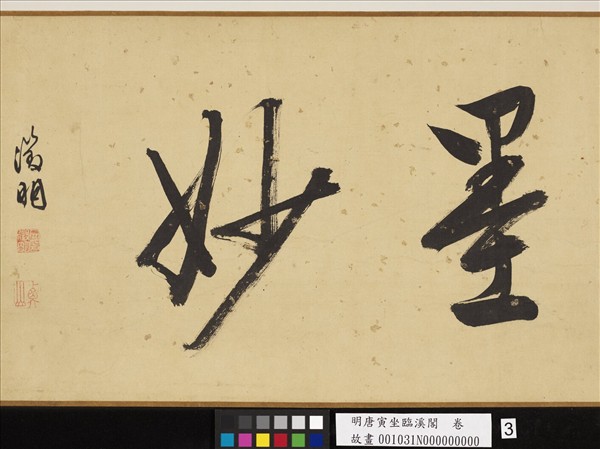 墨妙
徵明
明唐寅坐臨溪閣 卷
故畫 001031N000000000
3